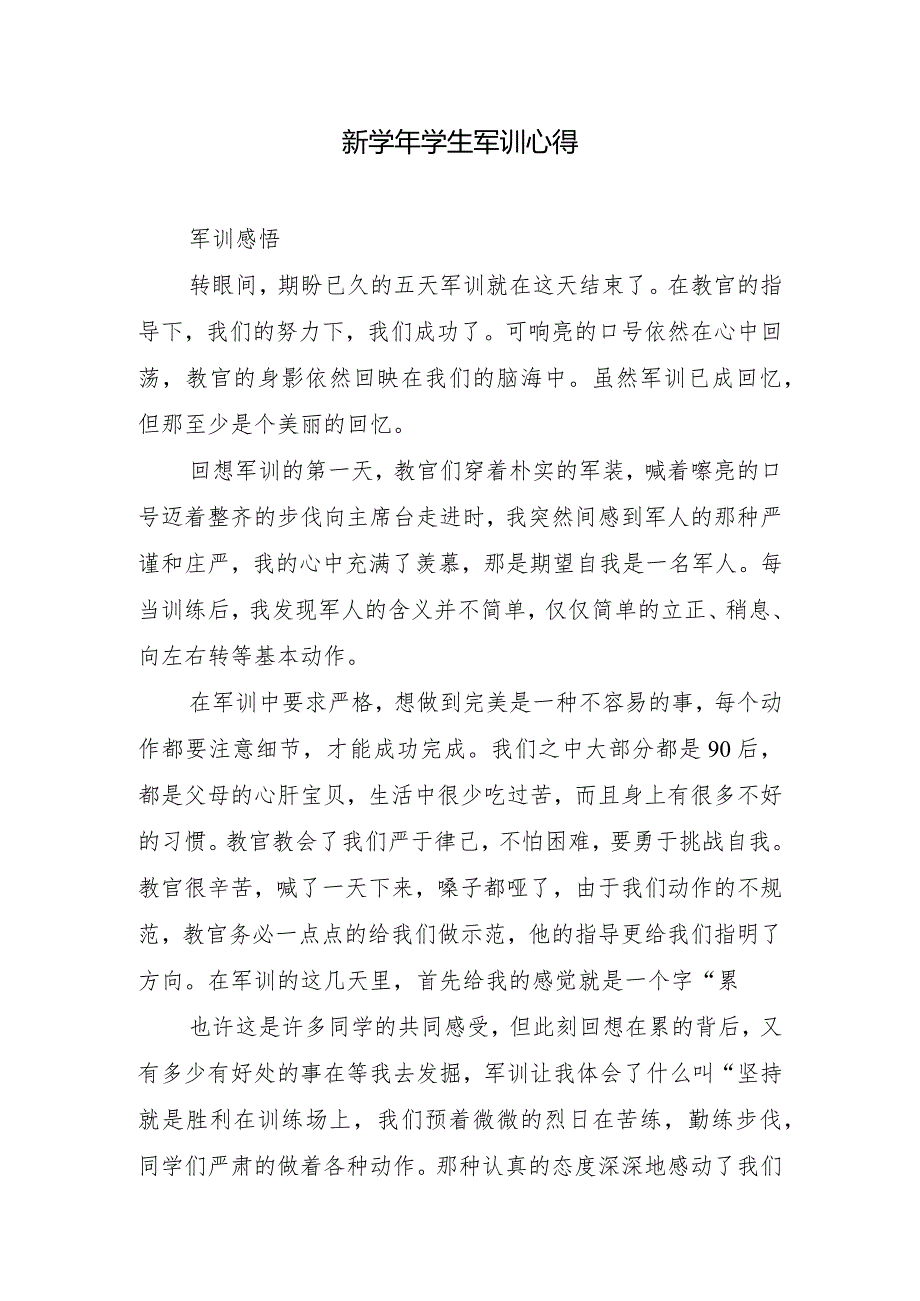 新学年学生军训心得
军训感悟
转眼间，期盼已久的五天军训就在这天结束了。在教官的指
导下，我们的努力下，我们成功了。可响亮的口号依然在心中回
荡，教官的身影依然回映在我们的脑海中。虽然军训已成回忆，
但那至少是个美丽的回忆。
回想军训的第一天，教官们穿着朴实的军装，喊着嘹亮的口
号迈着整齐的步伐向主席台走进时，我突然间感到军人的那种严
谨和庄严，我的心中充满了羡慕，那是期望自我是一名军人。每
当训练后，我发现军人的含义并不简单，仅仅简单的立正、稍息、
向左右转等基本动作。
在军训中要求严格，想做到完美是一种不容易的事，每个动
作都要注意细节，才能成功完成。我们之中大部分都是 90 后，
都是父母的心肝宝贝，生活中很少吃过苦，而且身上有很多不好
的习惯。教官教会了我们严于律己，不怕困难，要勇于挑战自我。
教官很辛苦，喊了一天下来，嗓子都哑了，由于我们动作的不规
范，教官务必一点点的给我们做示范，他的指导更给我们指明了
方向。在军训的这几天里，首先给我的感觉就是一个字“累
也许这是许多同学的共同感受，但此刻回想在累的背后，又
有多少有好处的事在等我去发掘，军训让我体会了什么叫“坚持
就是胜利在训练场上，我们预着微微的烈日在苦练，勤练步伐，
同学们严肃的做着各种动作。那种认真的态度深深地感动了我们